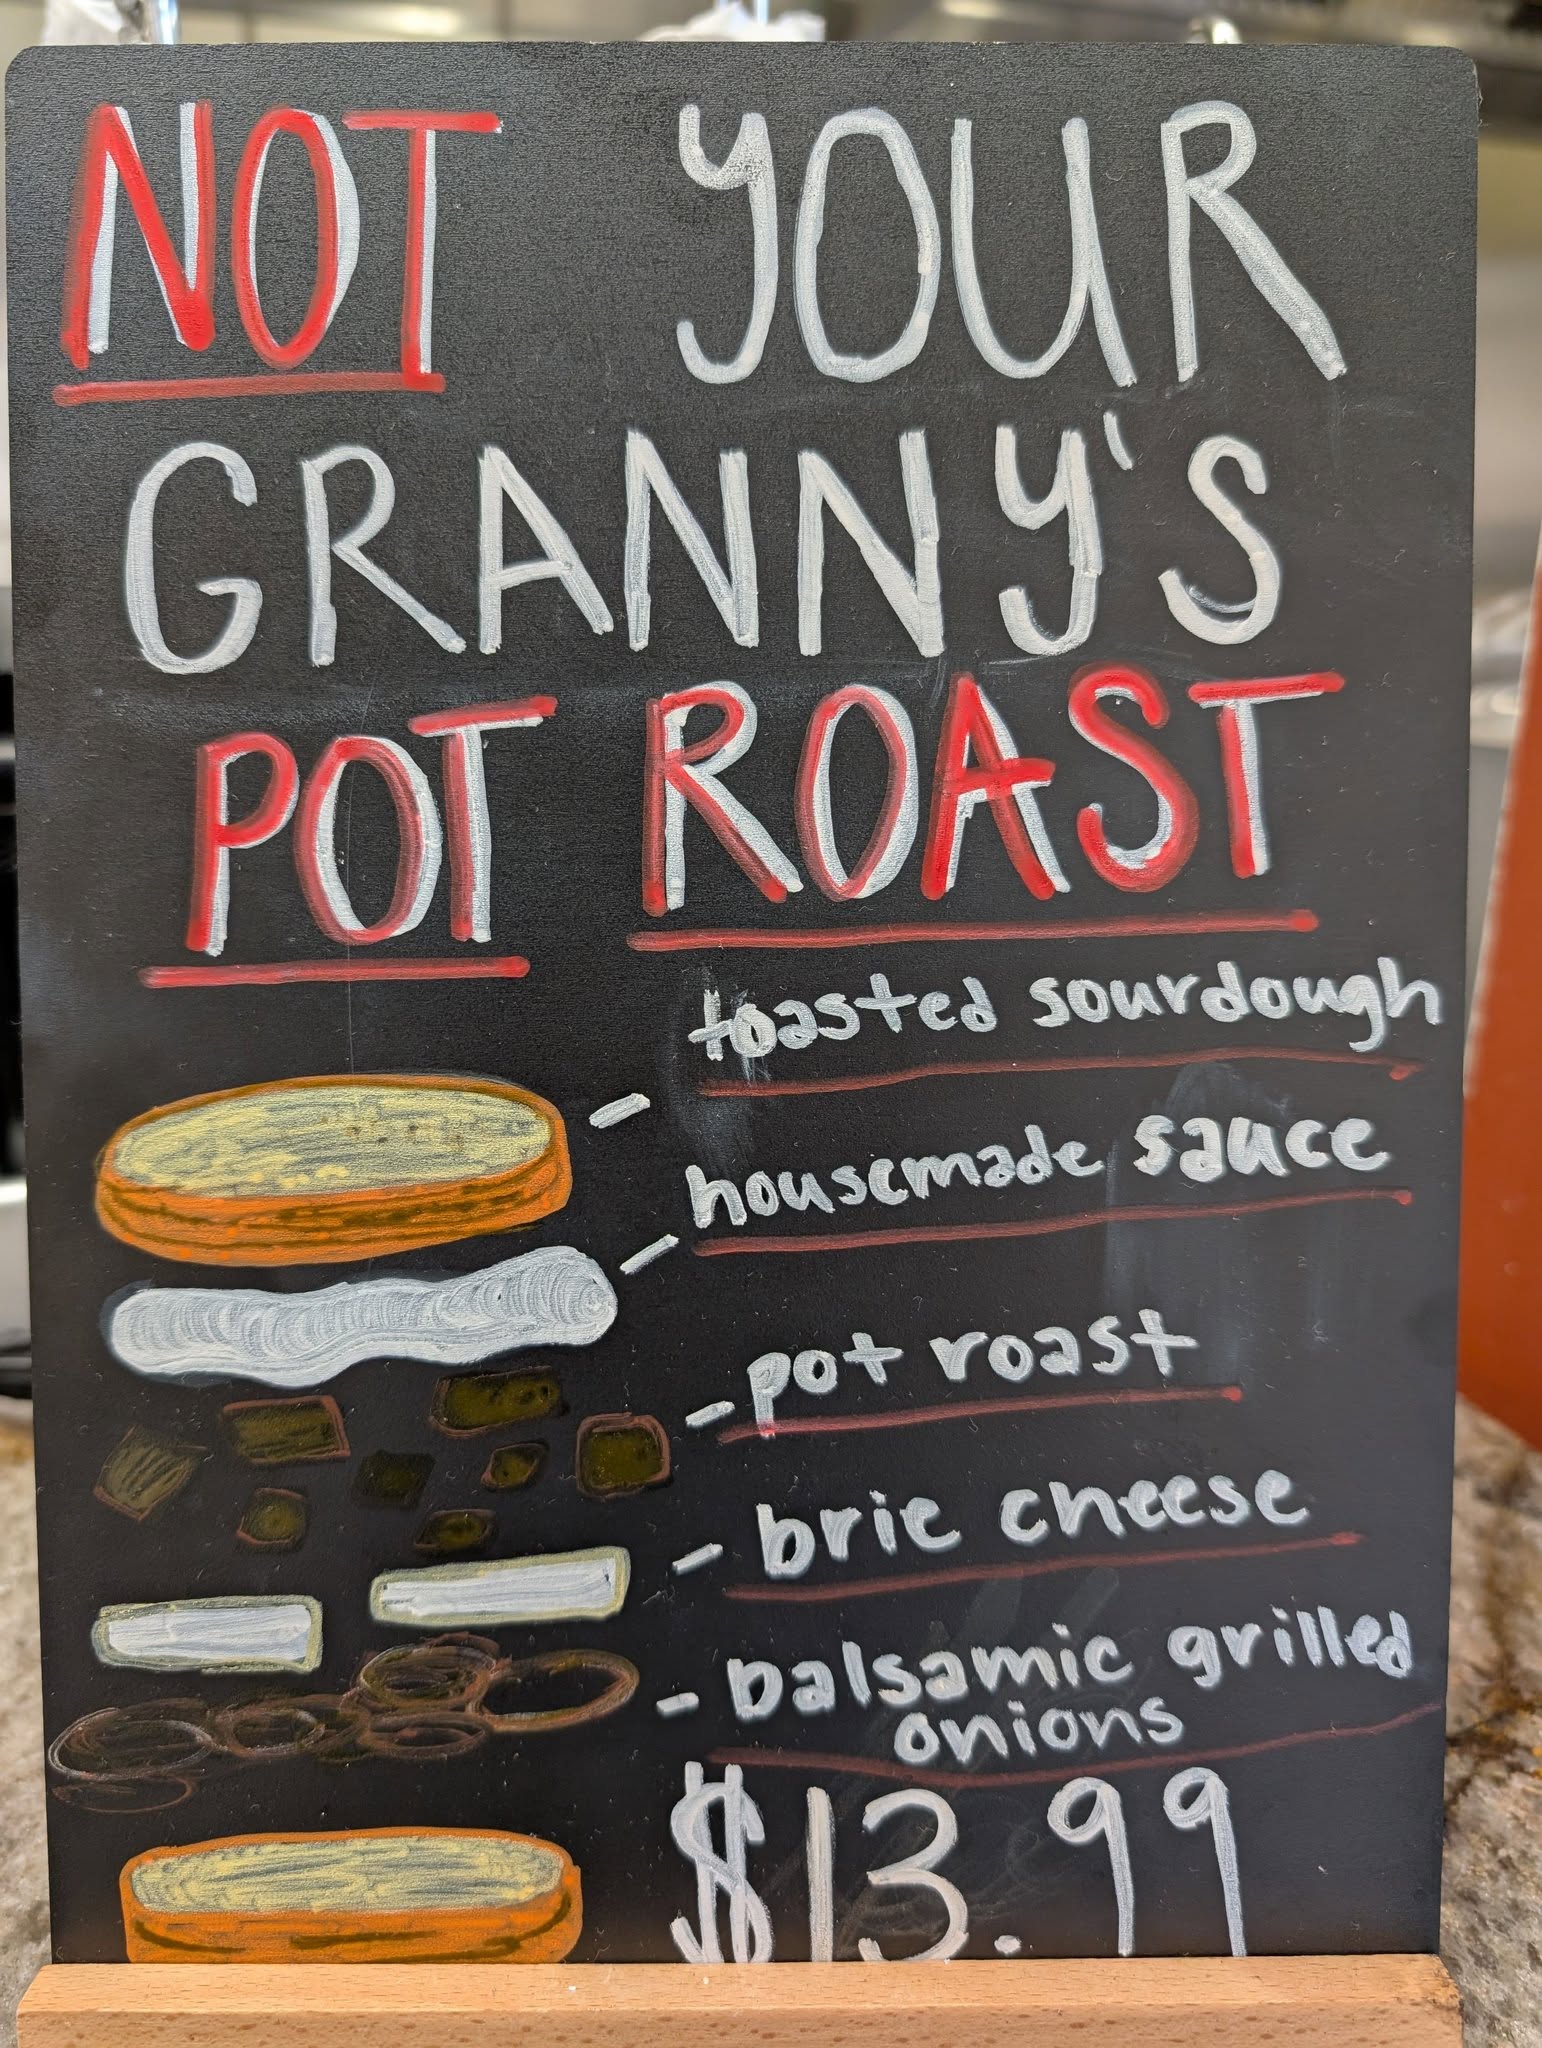 NOT YOUR
GRANNY'S
POT ROAST
toasted sourdough
housemade sauce
pot roast
brie cheese
balsamic grilled
onions
$13.99